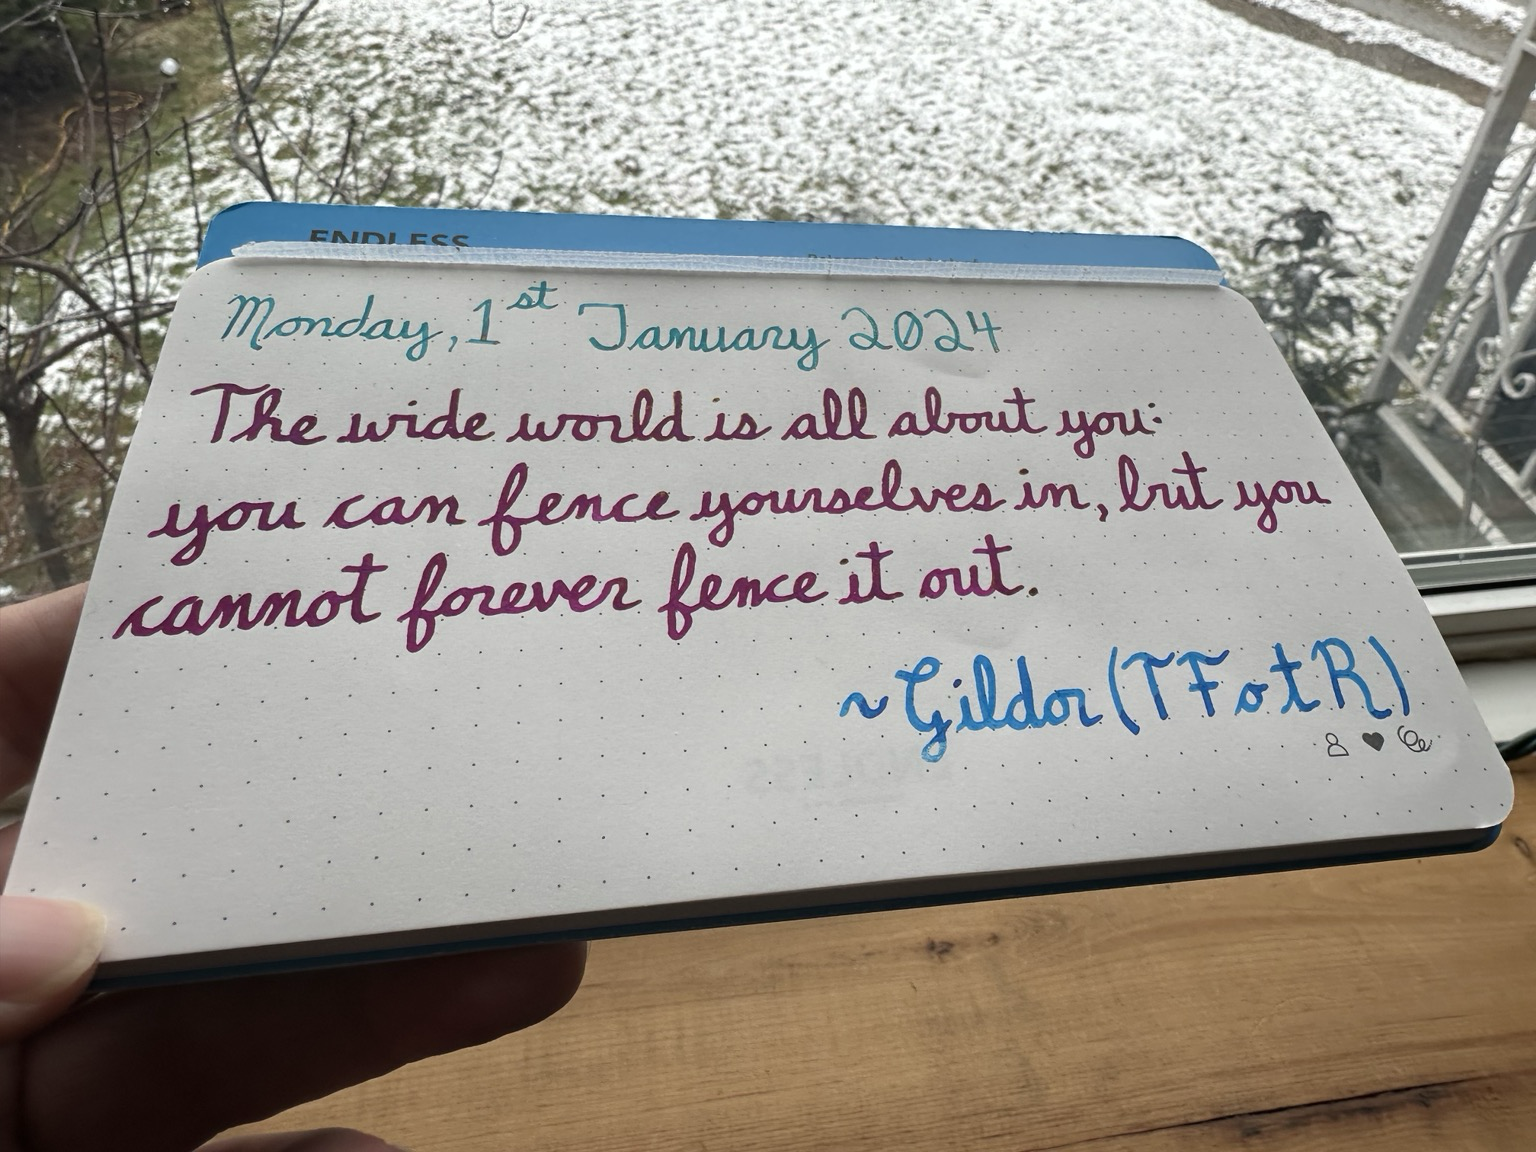 ENDLESS
Monday, 1st January 2024
The wide world is all about you:
you can fence yourselves in, but you
cannot forever fence it out.
~Gildor (TFotR)